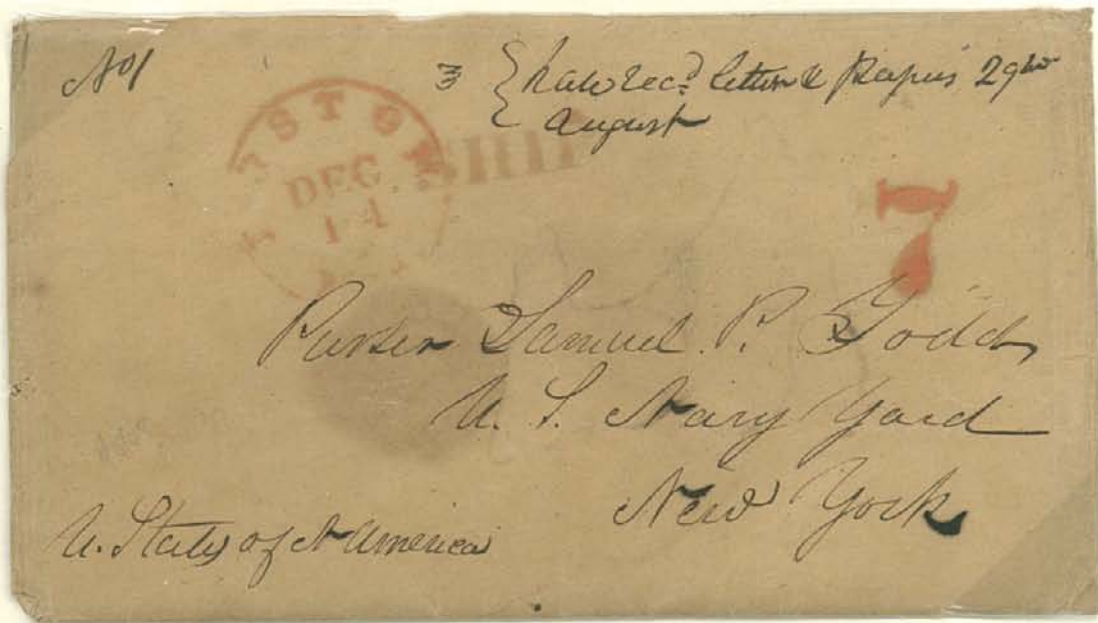 No 1
3 { have recd letters & papers 29th
August
BOSTON
DEC
14
SHIP
7
Purser Samuel. P. Todd
U. S. Navy Yard
New York
U. States of N America